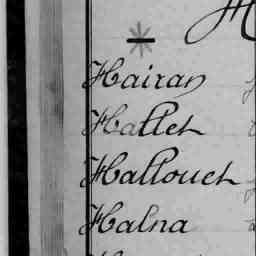 H
Hairan
Hallet
Hallouet
Halna